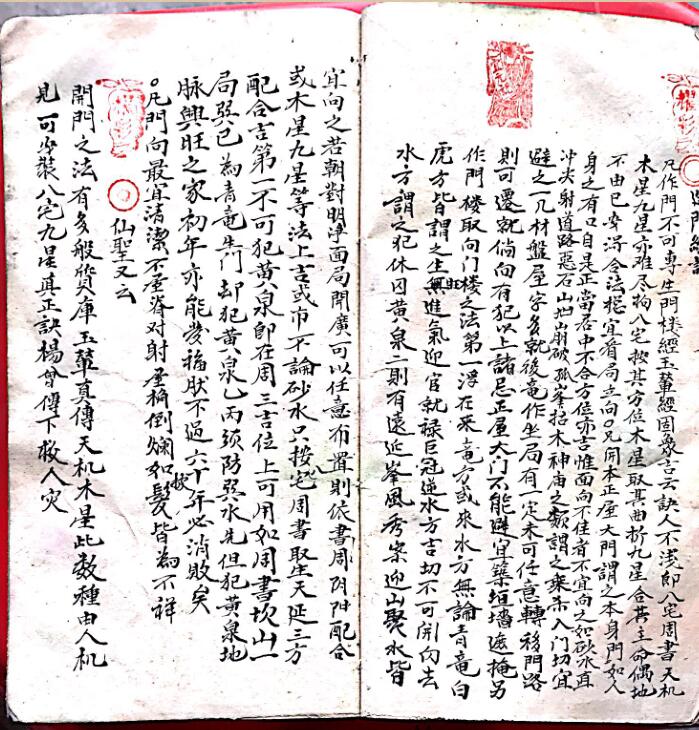 凡作門不可專生門樓經玉輦經固象吉云訣人不浅即八宅周書天机
木星九星亦难尽拘八宅按其方位木星取其曲折九星合其主命偶地
不由已安得合法穏宜看局立向凡開本正屋大門謂之本身門如人
身之有口自是正當居中不合方位亦吉惟面向不佳者不宜向之如砍水直
冲尖射道路惡石山地崩破孤峯枯木神庙之類謂之乘杀入門切宜
避之一凡材盤屋字多就後竜作坐局有一定未可任意轉移門路
則可遷就倘向有犯以上諸忌正屋大门不能避宜築垣墻遮掩另
作門楼取向门楼之法第一浮在来竜方或來水方無論青竜白
虎方皆謂之生旺無進氣迎官就禄巨冠逆水方吉切不可開向去
水方謂之犯休囚黄八泉二則有遠近峯風秀案迎山聚水皆
宜向之若朝對明净面局開廣可以任意布置則依書周阴阳配合
或木星九星等法上吉或市不論砂水只按宅周書取生天延三方
配合吉第一不可犯黄八泉即在周三吉位上可用如周書坎山一
局巽已為青竜生门却犯黄八泉乙丙须防巽水先但犯黄泉地
脉興旺之家初年亦能发福肤不过六十年必消敗矣
凡門向最宜清潔不宜脊对射屋桷倒爛如髮皆為不祥
仙聖又云
開門之法有多般货庫玉輦真傳天机木星此数種由人机
見可少裝八宅九星真正訣楊曾傳下救人灾